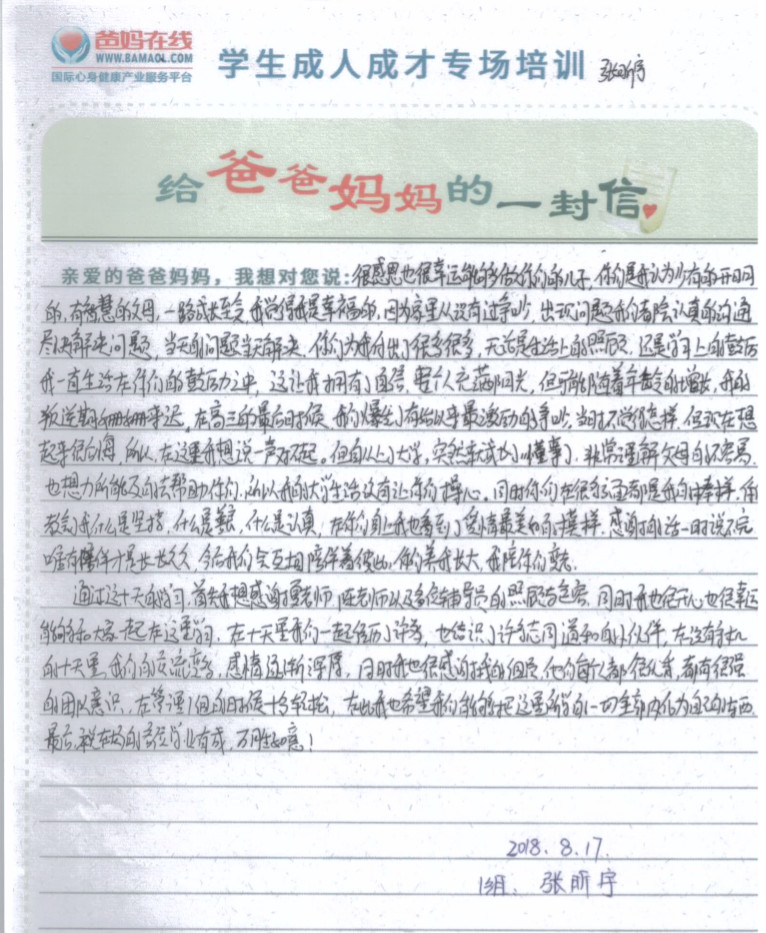 爸妈在线
WWW.BAMAOL.COM
国际心身健康产业服务平台
学生成人成才专场培训 张昕宇
给爸爸妈妈的一封信
亲爱的爸爸妈妈，我想对您说：很感恩也很幸运能够做你们的儿子，你们是我认为少有的开明
的，有智慧的父母，一路成长至今我觉得我是幸福的，因为家里从没有过争吵，出现问题我们都会认真的沟通
尽快解决问题，当天的问题当天解决，你们为我付出了很多很多，无论是生活上的照顾，还是学习上的鼓励
我一直生活在你们的鼓励之中，这让我拥有了自信，整个人充满阳光，但可能随着年龄的增长，我的
叛逆期姗姗来迟，在高三的最后时候，我们爆发了有始以来最激动的争吵，当时不觉得怎样，但现在想
起来很后悔，所以，在这里我想说一声对不起，但自从上了大学，突然来我长大懂事了，非常理解父母的不容易
也想力所能及的去帮助你们，所以我的大学生活没有让你们操心，同时你们在很多方面都是我的榜样，
教会我什么是坚持，什么是，什么是认真，在你们身上我也看到了爱情最美的模样，感谢的话一时说不完
唯有陪伴才是长长久久，今后我们会互相陪伴着彼此，你们养我长大，我陪你们变老。
通过这十天的学习，首先我想感谢老师，陈老师以及多位辅导员的照顾与包容，同时我也很开心也很幸运
能够和大家一起在这里学习，在十天里我们一起经历了许多，也结识了许多志同道和的小伙伴，在没有手机
的十天里，我们的交流变多，感情逐渐深厚，同时我也很感谢我的组员，他们每个人都很优秀，都有很强
的团队意识，在管理小组的时候十分轻松，在此我也希望我们能够把这里所学的一切全部内化为自己的东西
最后，祝在场的各位学业有成，万事如意！
2018.8.17.
13组、张昕宇